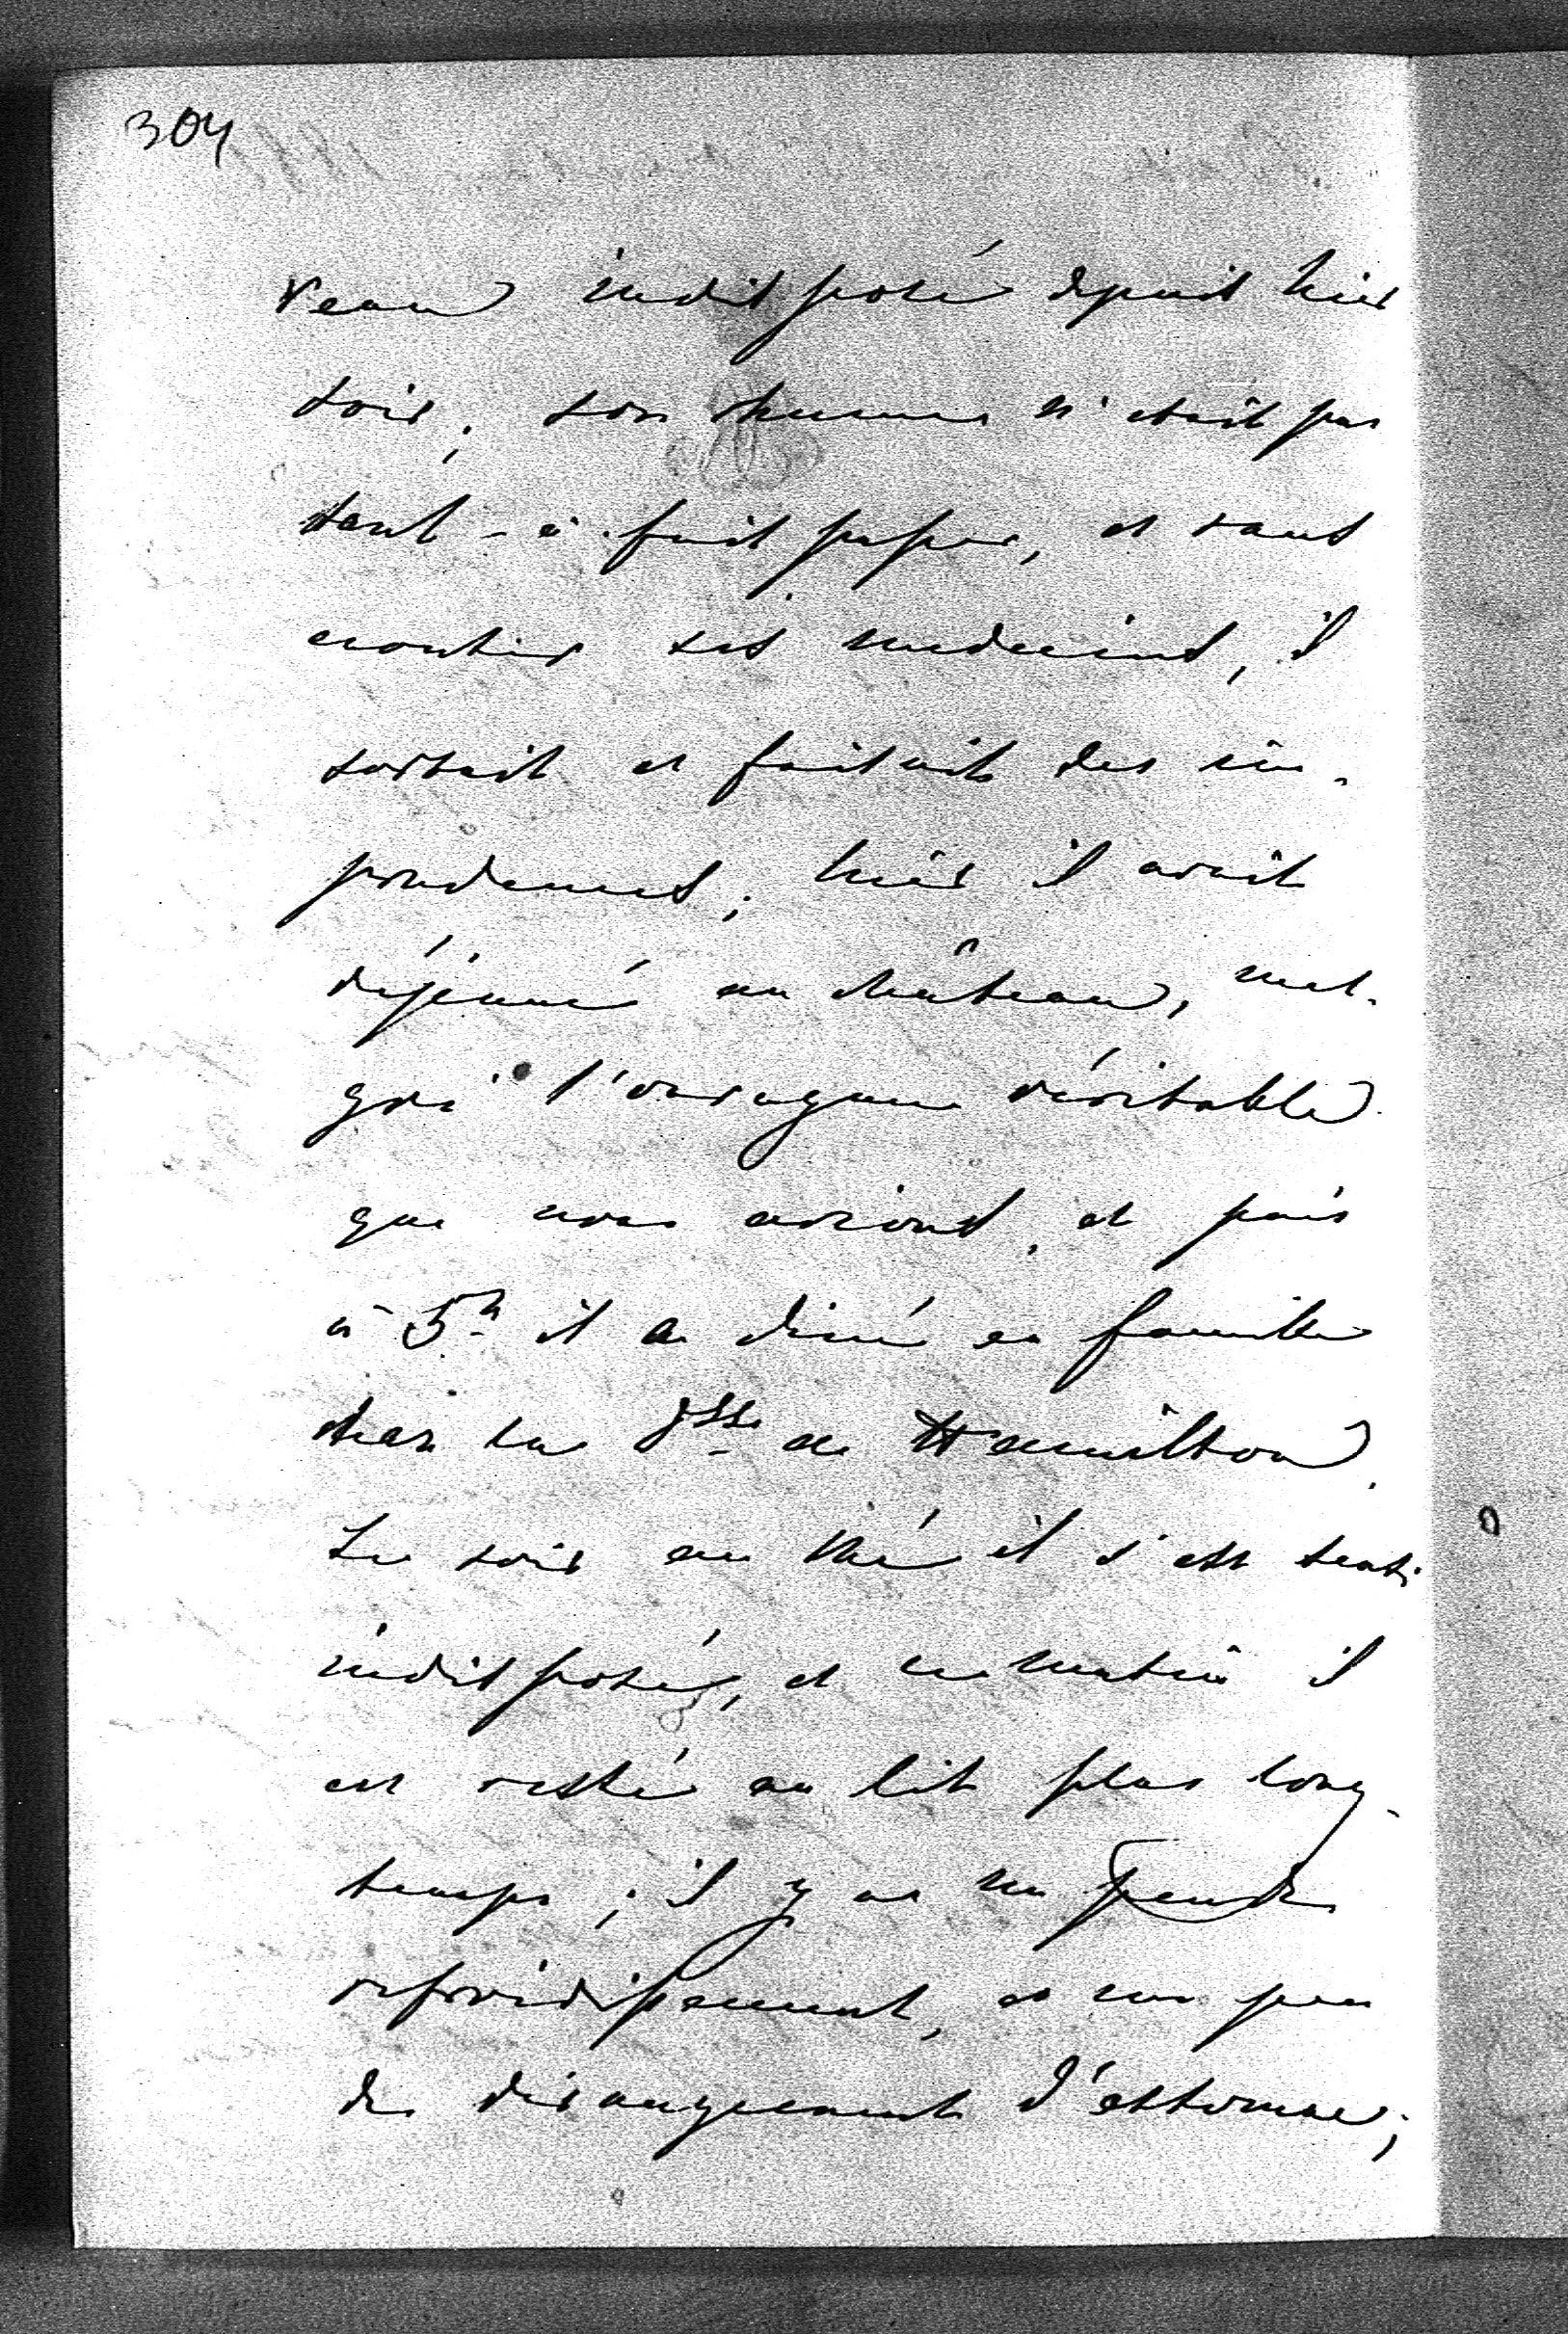 304
veau indisposé depuis hier
soir; son rhume n'était pas
tout-à-fait passé, et sans
écouter ses médecins, il
sortait et faisait des im-
prudences; hier il avait
déjeuné au château, mal-
gré l'ouragan véritable
que nous avions, et puis
à 5h il a diné en famille
chez la Dsse de Hamilton.
Le soir au thé il s'est senti
indisposé, et ce matin il
est resté au lit plus long-
temps; il y a un peu de
refroidissement, et un peu
de dérangement d'estomac;